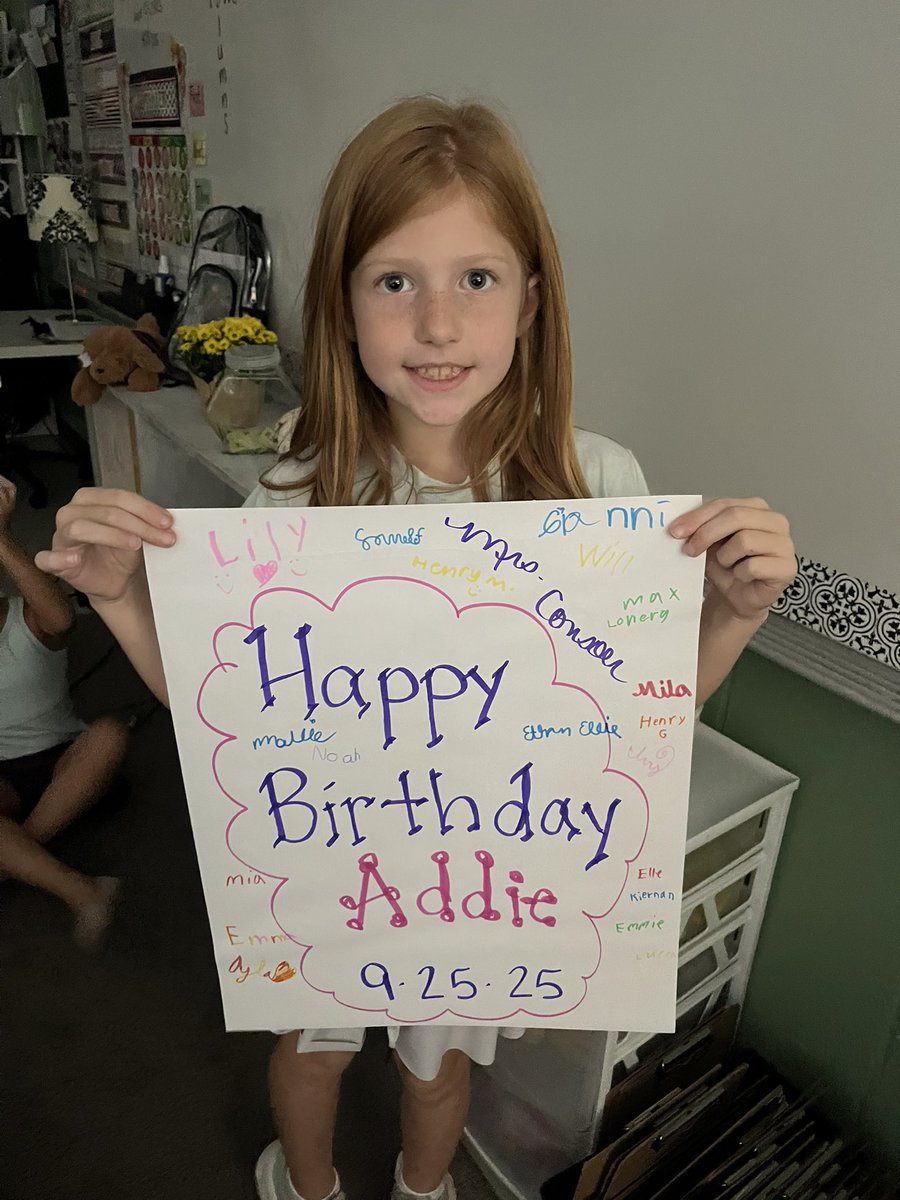 Lily
Mrs. Conson
Gianni
Will
Henry M.
max
Lonerg
Happy
Mila
Mallie
Noah
Ellie
Henry
G
Birthday
Addie
mia
Elle
Kiernan
Emmie
Emma
Ayla
Lucca
9.25.25